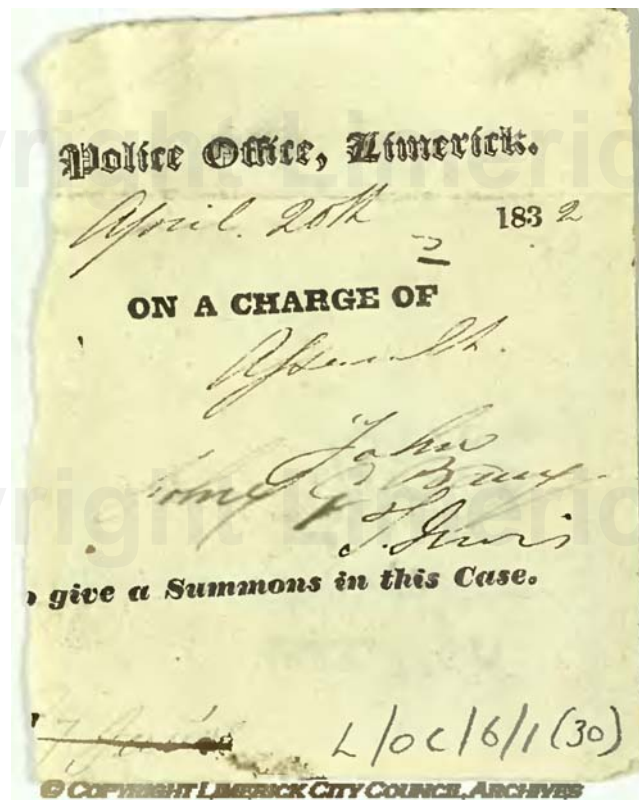 Police Office, Limerick.
April. 20th 1832
ON A CHARGE OF
Assault.
John
T. Lewis
give a Summons in this Case.
L/OC/6/1(30)
© COPYRIGHT LIMERICK CITY COUNCIL ARCHIVES